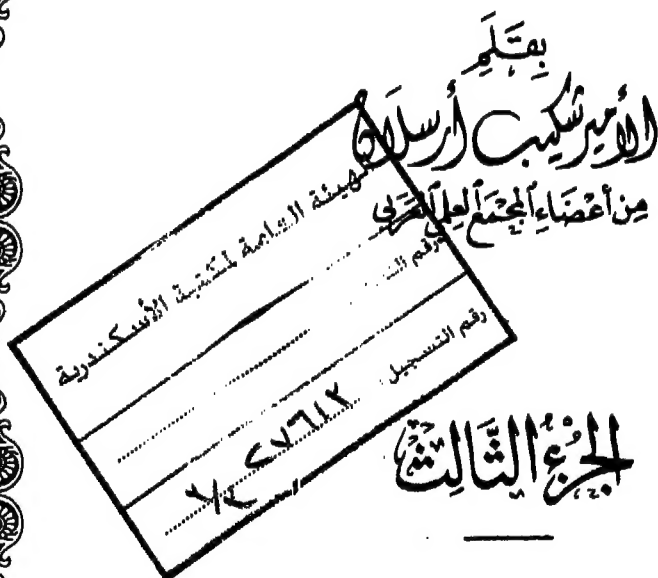 بِقَلَمِ
الأمير شكيب أرسلان
مِن أعضَاءِ المجمَع العِلمي العَرَبي
الهيئة العامة لمكتبة الأسكندرية
رقم
رقم التسجيل
٢٧٦١٢
الجُزءُ الثَّالِث